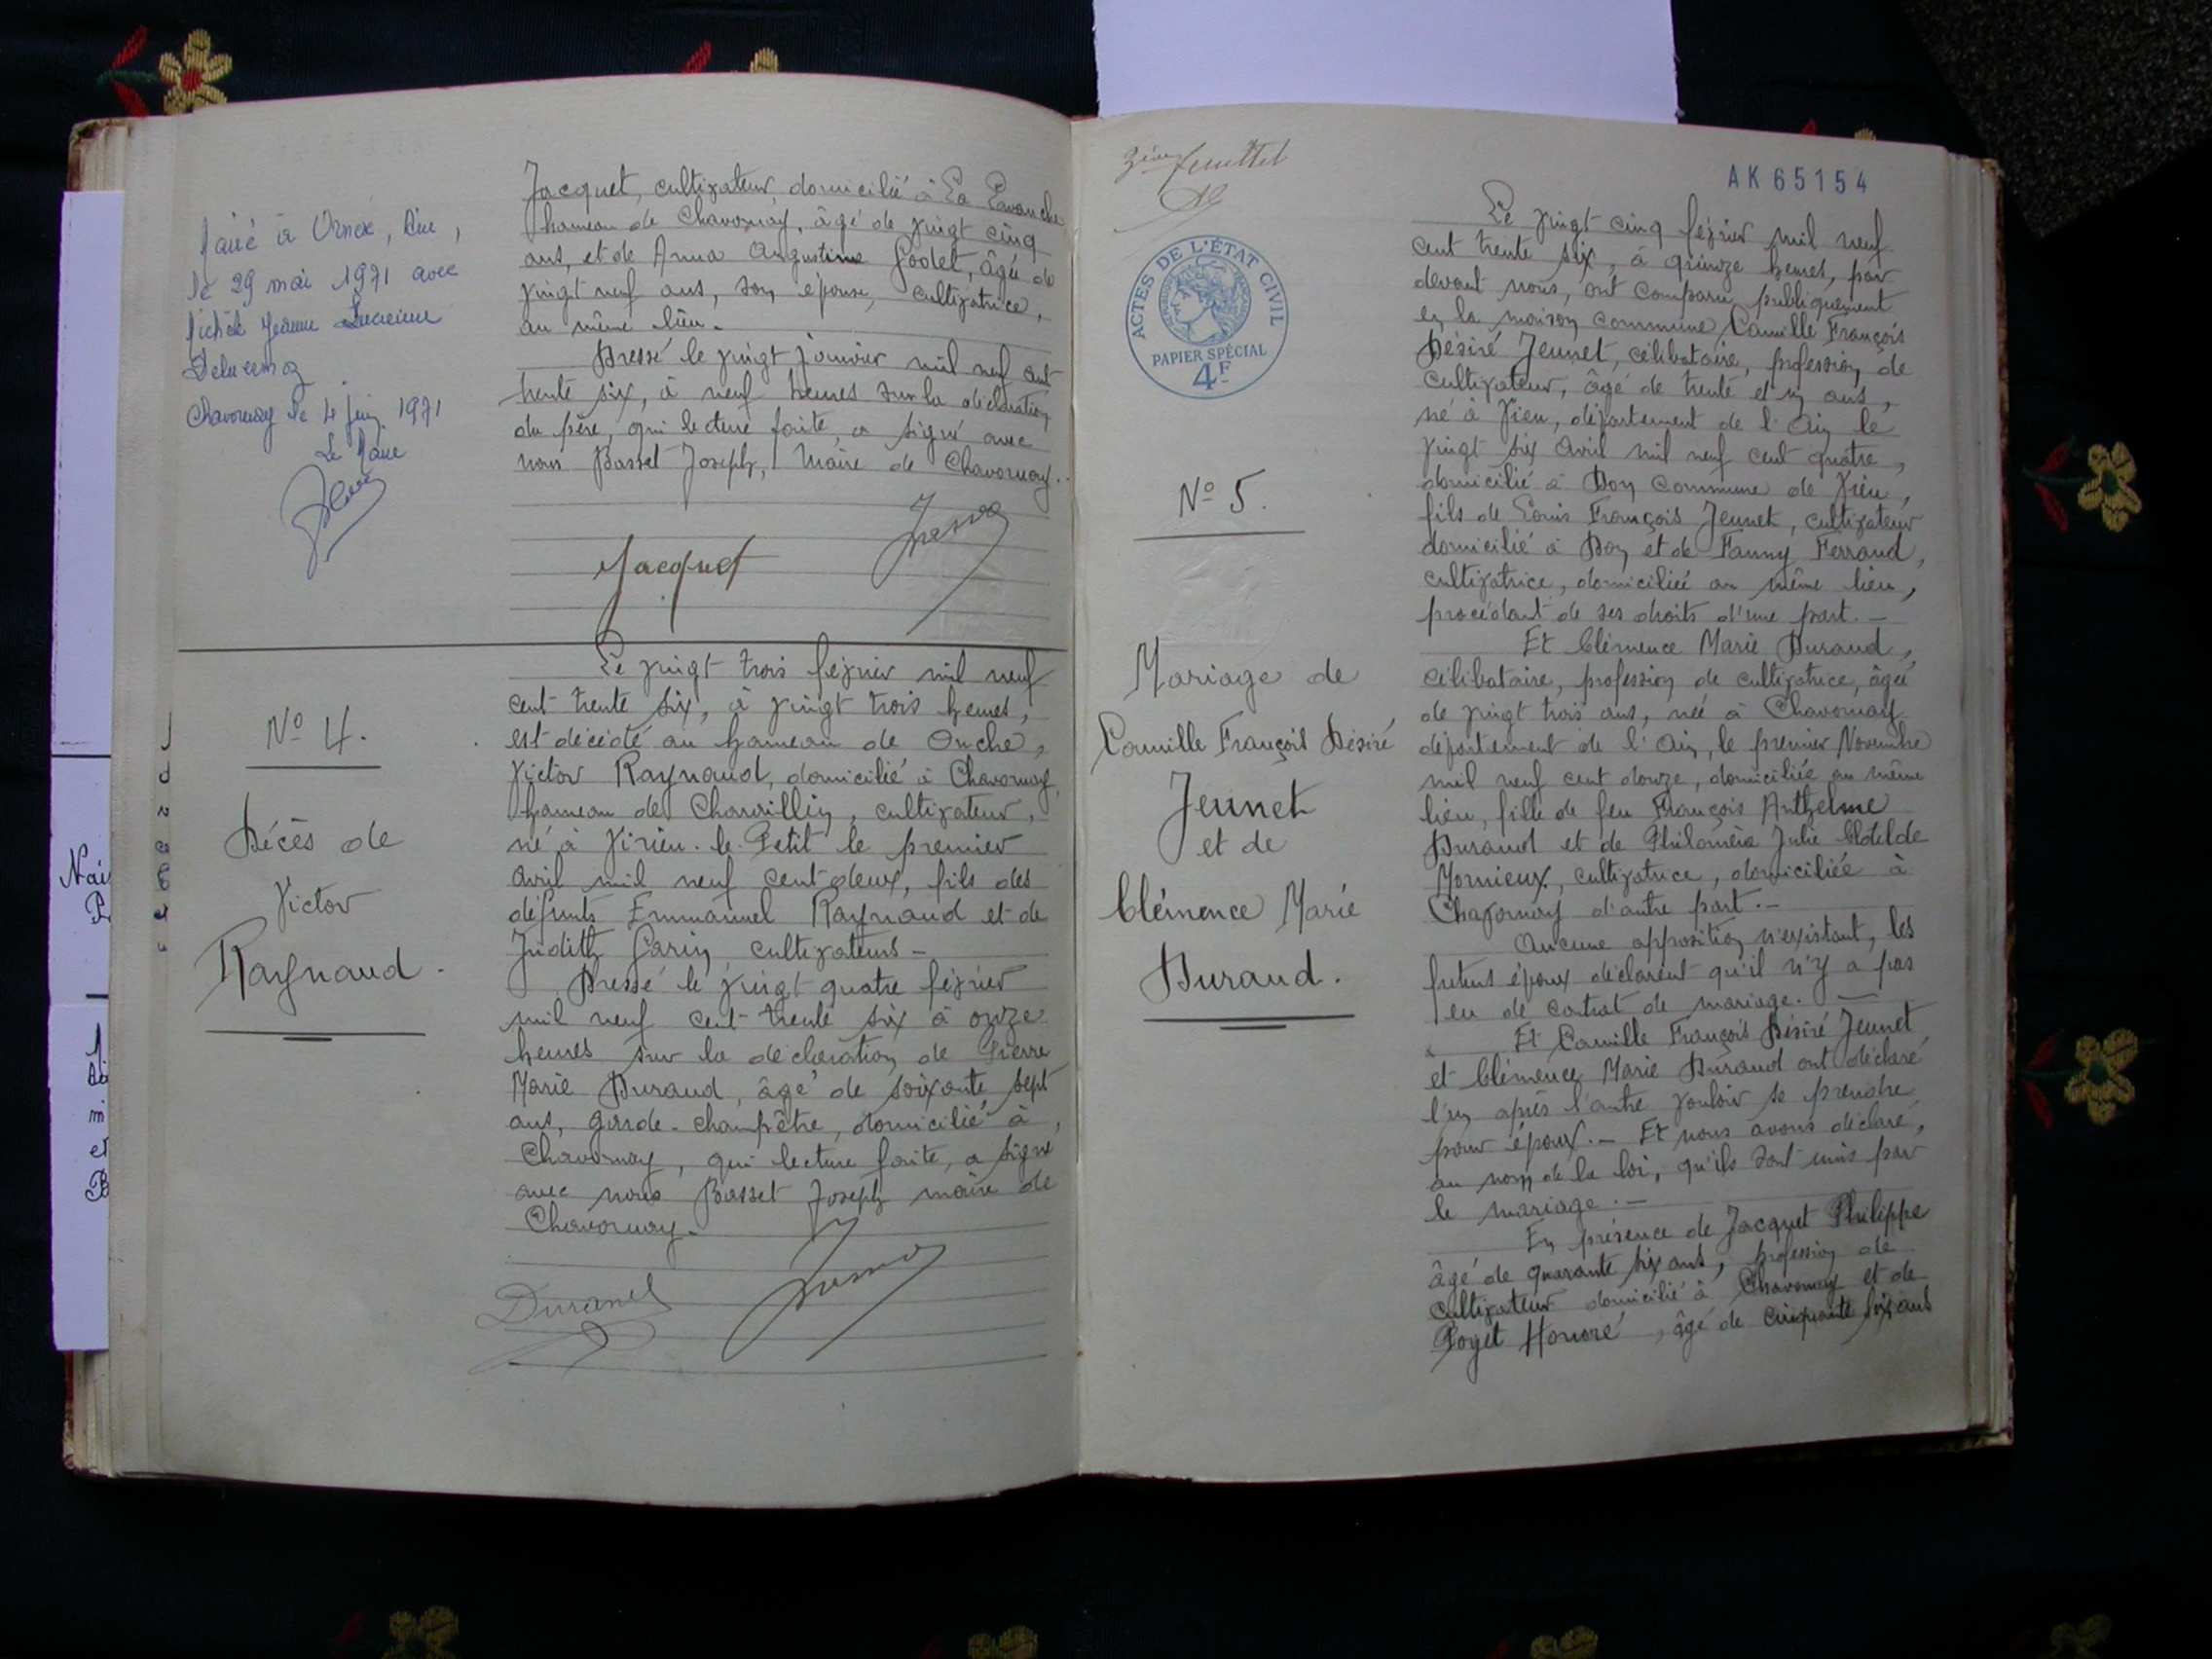 Jacquet, cultivateur domicilié à La Lavanche
hameau de Chavornay, âgé de vingt cinq
ans, et de Anna Augustine Godet, âgée de
vingt neuf ans, son épouse, cultivatrice,
au même lieu.
Dressé le vingt janvier mil neuf cent
trente six, à neuf heures sur la déclaration
du père, qui lecture faite, a signé avec
nous Basset Joseph, Maire de Chavornay.
Jacquet
Marié à Ornex, Ain,
le 29 mai 1971 avec
Michèle Jeanne Lucienne
Chavornay le 4 juin 1971
Le Maire
N° 4.
Décès de
Victor
Raynaud.
Le vingt trois février mil neuf
cent trente six, à vingt trois heures,
est décédé au hameau de Ouche,
Victor Raynaud, domicilié à Chavornay,
hameau de Charvillin, cultivateur,
né à Virieu-le-Petit le premier
avril mil neuf cent deux, fils des
défunts Emmanuel Raynaud et de
Judith Garin, cultivateurs -
Dressé le vingt quatre février
mil neuf cent trente six à onze
heures sur la déclaration de Pierre
Marie Durand, âgé de soixante sept
ans, garde-champêtre, domicilié à
Chavornay, qui lecture faite, a signé
avec nous Basset Joseph maire de
Chavornay.
Durand
3ième feuillet
AK 65154
ACTES DE L'ÉTAT CIVIL
PAPIER SPÉCIAL
4F
N° 5.
Mariage de
Camille François Désiré
Jeunet
et de
Clémence Marie
Durand.
Le vingt cinq février mil neuf
cent trente six, à quinze heures, par
devant nous, ont comparu publiquement
en la maison commune Camille François
Désiré Jeunet, célibataire, profession de
cultivateur, âgé de trente et un ans,
né à Vieu, département de l'Ain le
vingt six avril mil neuf cent quatre,
domicilié à Don commune de Vieu,
fils de Louis François Jeunet, cultivateur
domicilié à Don et de Fanny Ferrand,
cultivatrice, domiciliée au même lieu,
procédant de ses droits d'une part. -
Et Clémence Marie Durand,
célibataire, profession de cultivatrice, âgée
de vingt trois ans, née à Chavornay
département de l'Ain, le premier Novembre
mil neuf cent douze, domiciliée au même
lieu, fille de feu François Anthelme
Durand et de Philomèia Julie Clotilde
Mornieux, cultivatrice, domiciliée à
Chavornay d'autre part. -
Aucune apposition n'existant, les
futurs époux déclarent qu'il n'y a pas
eu de contrat de mariage. -
Et Camille François Désiré Jeunet
et Clémence Marie Durand ont déclaré
l'un après l'autre vouloir se prendre
pour époux. - Et nous avons déclaré,
au nom de la loi, qu'ils sont unis par
le mariage. -
En présence de Jacquet Philippe
âgé de quarante six ans, profession de
cultivateur domicilié à Chavornay et de
Poyet Honoré, âgé de cinquante six ans